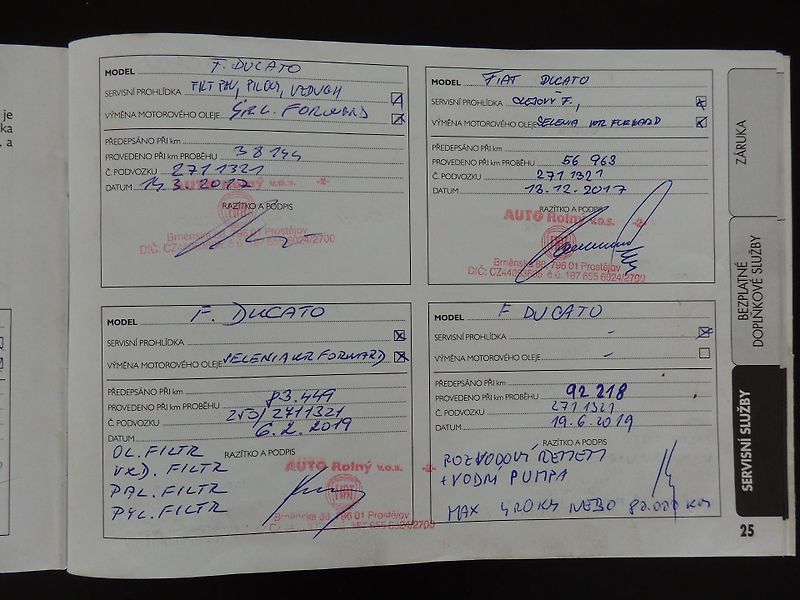 je
ka
, a
MODEL F. DUCATO
SERVISNÍ PROHLÍDKA FILT PAL, PYLOV, VZDUCH
VÝMĚNA MOTOROVÉHO OLEJE FORWARD
PŘEDEPSÁNO PŘI km
PROVEDENO PŘI km PROBĚHU 38144
Č. PODVOZKU 2711321
DATUM 14.3.2017
RAZÍTKO A PODPIS
AUTO Rolný v.o.s. -2-
FIAT
Brněnská 88, 796 01 Prostějov
DIČ: CZ44053695 č.ú. 187 655 6024/2700
MODEL FIAT DUCATO
SERVISNÍ PROHLÍDKA OLEJOVÝ F.,
VÝMĚNA MOTOROVÉHO OLEJE SELENIA WR FORWARD
PŘEDEPSÁNO PŘI km
PROVEDENO PŘI km PROBĚHU 56 963
Č. PODVOZKU 2711321
DATUM 13.12.2017
RAZÍTKO A PODPIS
AUTO Rolný v.o.s. -2-
FIAT
Brněnská 88, 796 01 Prostějov
DIČ: CZ44053695 č.ú. 187 655 6024/2700
MODEL F. DUCATO
SERVISNÍ PROHLÍDKA
VÝMĚNA MOTOROVÉHO OLEJE SELENIA WR FORWARD
PŘEDEPSÁNO PŘI km
PROVEDENO PŘI km PROBĚHU 83.449
Č. PODVOZKU 250/2711321
DATUM 6.2.2019
OL. FILTR RAZÍTKO A PODPIS
VZD. FILTR
PAL. FILTR
PYL. FILTR
AUTO Rolný v.o.s. -2-
FIAT
Brněnská 88, 796 01 Prostějov
č.ú. 187 655 6024/2700
MODEL F DUCATO
SERVISNÍ PROHLÍDKA -
VÝMĚNA MOTOROVÉHO OLEJE -
PŘEDEPSÁNO PŘI km
PROVEDENO PŘI km PROBĚHU 92 218
Č. PODVOZKU 2711321
DATUM 19.6.2019
RAZÍTKO A PODPIS
ROZVODOVÝ ŘEMEN
+ VODNÍ PUMPA
MAX 4 ROKY NEBO 80.000 KM
ZÁRUKA
BEZPLATNÉ
DOPLŇKOVÉ SLUŽBY
SERVISNÍ SLUŽBY
25